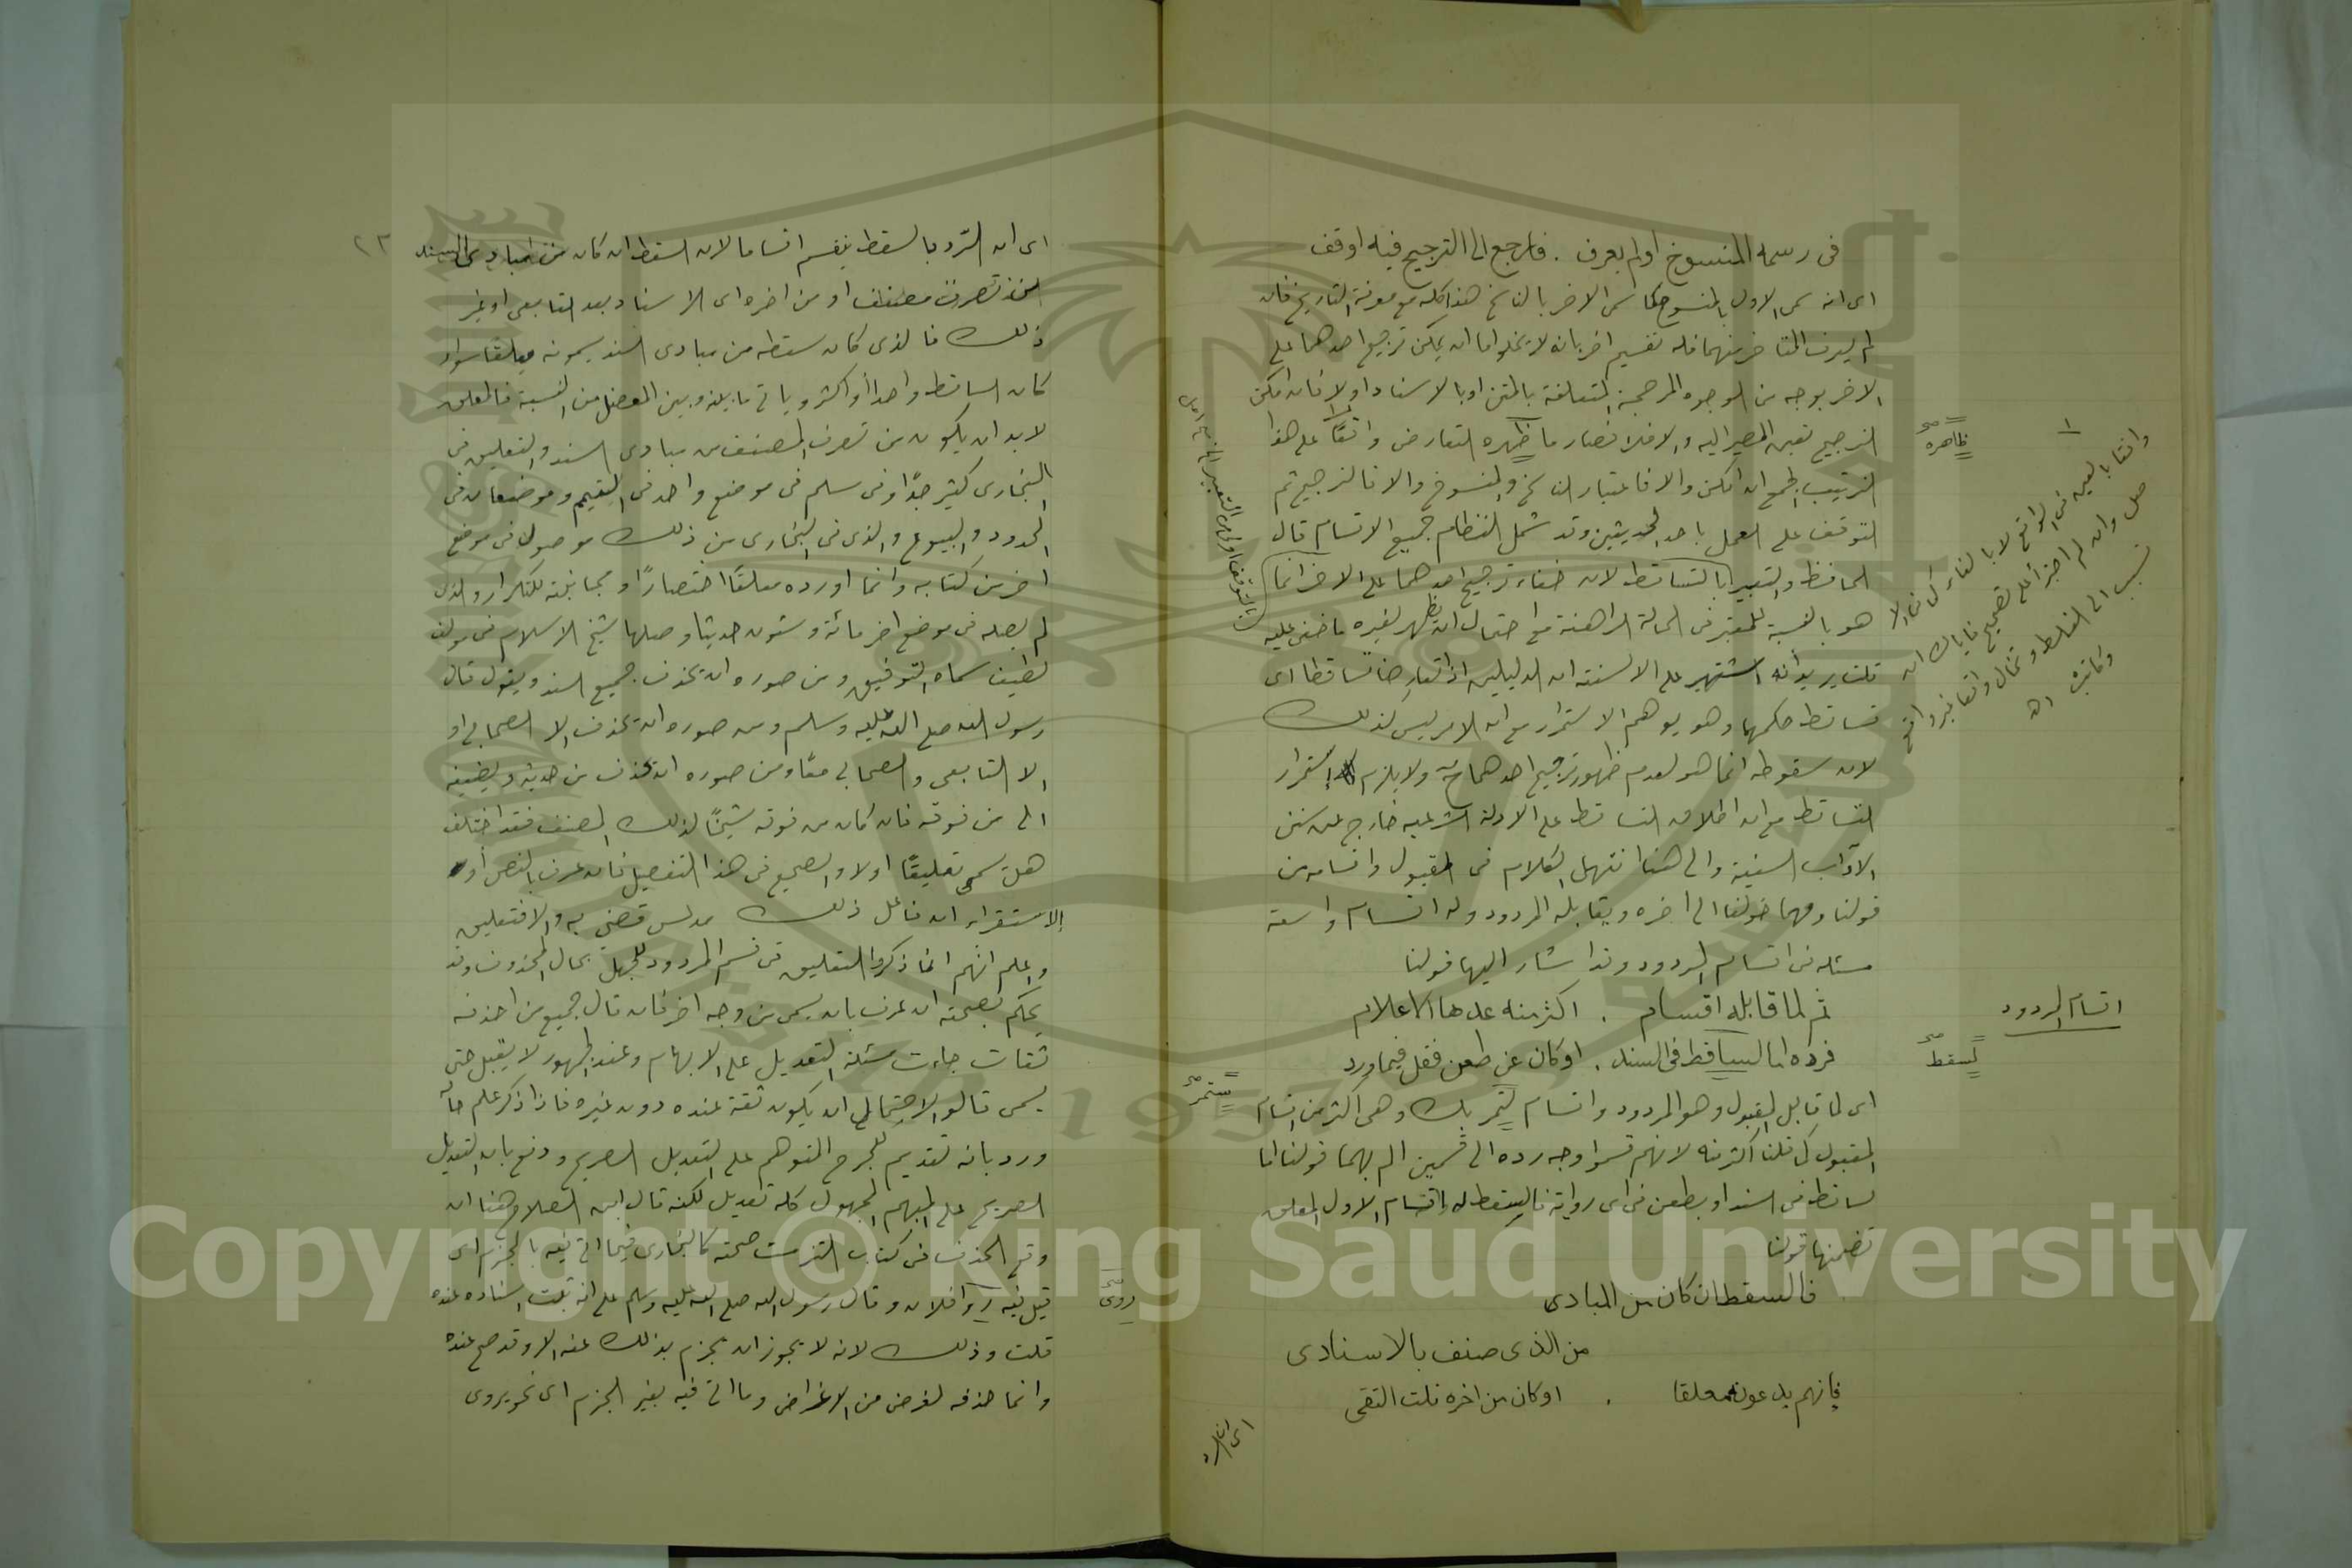 فى رسمه المنسوخ او لم يعرف . فارجع الى الترجيح فيه او قف
اى انه سمى الاول بالمنسوخ كما سمى الاخر بالناسخ هذا كله مع معرفة التاريخ فان
لم يعرف المتاخر منهما فله تقسيم اخر بانه لا يخلو اما ان يمكن ترجيح احدهما على
الاخر بوجه من الوجوه المرجحة المتعلقة بالمتن او بالاسناد اولا فان امكن
الترجيح تعين المصير اليه والا فلا فصار ما ظهره التعارض واقعًا على هذا
الترتيب الجمع ان امكن والا فاعتبار الناسخ والمنسوخ والا فالترجيح ثم
التوقف على العمل باحد الحديثين وقد شمل النظام جميع الاقسام قال
الحافظ والتعبير بالتساقط لان خفاء ترجيح احدهما على الاخر انما
هو بالنسبة للمعتبر فى الحالة الراهنة مع احتمال ان يظهر لغيره ما خفى عليه
قلت يريد أنه اشتهر على الالسنة ان الدليلين اذا تعارضا تساقطا اى
تساقط حكمهما وهو يوهم الاستمرار مع ان الامر ليس كذلك
لان سقوطه انما هو لعدم ظهور ترجيح احدهما ح ولا يلزم استمرار
التساقط مع ان اطلاق التساقط على الادلة الشرعية خارج عن سنن
الآداب السنية والى هنا انتهى الكلام فى المقبول واقسامه من
قولنا ومهما قولنا الى اخره ويقابله المردود وله اقسام واسعة
مسئله فى اقسام المردود وقد اشار اليها قولنا
ثم لما قابله اقسام . اكثر منه عدها الاعلام
فرده اما لساقط فى السند . او كان عن طعن فقل فيما ورد
اى لما قابل المقبول وهو المردود واقسام لتمر بك وهى اكثر من اقسام
المقبول كما قلنا اكثر منه لانهم قسموا وجه رده الى قسمين الم بهما قولنا اما
لساقط فى السند او بطعن فى اى رواية فالسقط له اقسام الاول المعلق
تضمنها قولنا
فالسقط ان كان من المبادى
من الذى صنف بالاسنادى
فانهم يدعونه معلقا . او كان من اخره قلت التقى
ظاهره
اقسام المردود
لسقط
ستمر
اى ان الرد
اى ان الرد بالسقط ينقسم اقساما لان السقط ان كان من مبادى السند
من تصرف مصنف او من اخره اى الاسناد بعد التابعى او غير
ذلك فالذى كان سقطه من مبادى السند يسمونه معلقا سواء
كان الساقط واحدا أو اكثر وياتى ما بينه وبين المعضل من النسبة فالمعلق
لا بد ان يكون من تصرف المصنف من مبادى السند والتعليق فى
البخارى كثير جدًا وفى مسلم فى موضع واحد فى التيمم وموضعان فى
الحدود والبيوع والذى فى البخارى من ذلك موصول فى موضع
اخر من كتابه وانما اورده معلقًا اختصارًا ومجانبة للتكرار والذى
لم يصله فى موضع اخر مائة وستون حديثا وصلها شيخ الاسلام فى مولف
لطيف سماه التوفيق ومن صوره ان يحذف جميع السند ويقول قال
رسول الله صلى الله عليه وسلم ومن صوره ان يحذف الا الصحابى او
الا التابعى والصحابى معًا ومن صوره ان يحذف من حدثه ويضيفه
الى من فوقه فان كان من فوقه شيخًا لذلك المصنف فقد اختلف
هل يسمى تعليقًا اولا والصحيح فى هذا التفصيل فان عرف بالنص أو
الاستقراء ان فاعل ذلك مدلس قضى به والا فتعليق
واعلم انهم انما ذكروا التعليق فى قسم المردود للجهل بحال المحذوف وقد
يحكم بصحته ان عرف بان يسمى من وجه اخر فان قال جميع من احذفه
ثقات جاءت مسئلة التعديل على الابهام وعند الجمهور لا يقبل حتى
يسمى قالوا لاحتمال ان يكون ثقة عنده دون غيره فاذا ذكر علم حاله
ورد بانه تقديم للجرح المتوهم على التعديل الصريح ودفع بان التعديل
الصريح على المبهم المجهول كله تعديل لكنه قال ابن الصلاح هنا ان
وقع الحذف فى كتاب التزمت صحته كالبخارى فيما اتى فيه بالجزم اى
قيل فيه روا فلان وقال رسول الله صلى الله عليه وسلم على انه ثبت اسناده عنده
قلت وذلك لانه لا يجوز ان يجزم بذلك عنه الا وقد صح عنده
وانما حذفه لغرض من الاغراض وما اتى فيه بغير الجزم اى نحو يروى
روى
٢٣
Copyright © King Saud University
1957